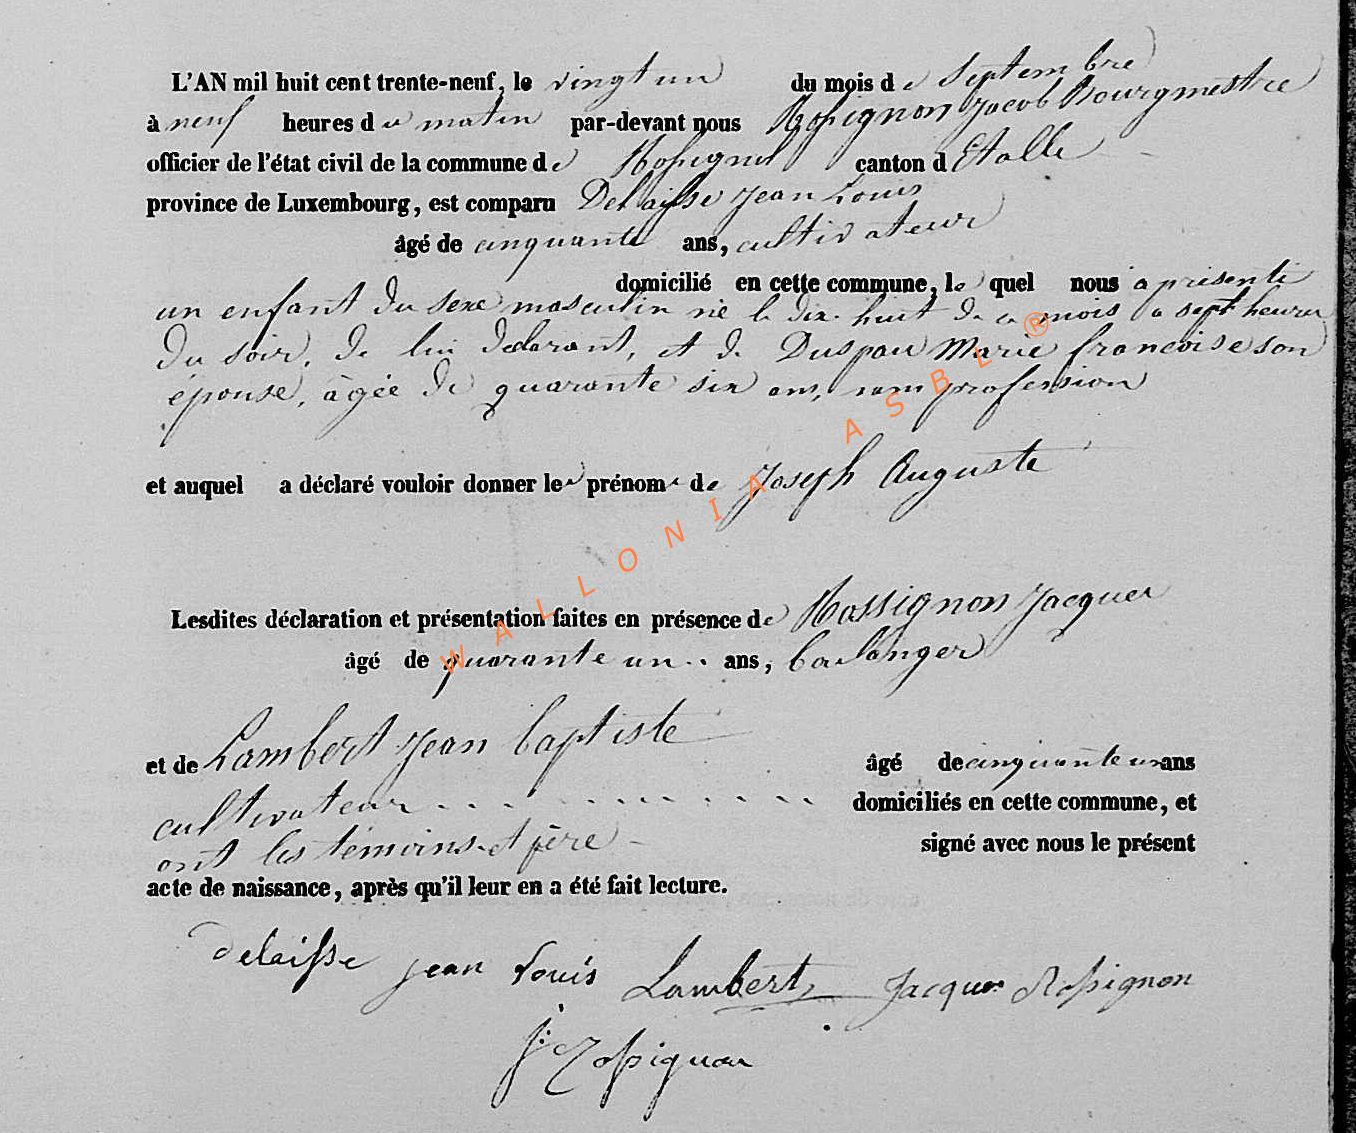 L'AN mil huit cent trente-neuf, le vingt un du mois de Septembre
à neuf heures du matin par-devant nous Rossignon Jacob Bourgmestre
officier de l'état civil de la commune de Rossignol canton d Etalle
province de Luxembourg, est comparu Delaisse Jean Louis
âgé de cinquante ans, cultivateur
domicilié en cette commune, le quel nous a présenté
un enfant du sexe masculin né le dix-huit de ce mois a sept heures
du soir, de lui déclarant, et de Marie francoise son
épouse, âgée de quarante six ans, sans profession
et auquel a déclaré vouloir donner les prénoms de Joseph Auguste
Lesdites déclaration et présentation faites en présence de Rossignon Jacques
âgé de quarante un ans, boulanger
et de Lambert Jean baptiste âgé de cinquante un ans
cultivateur domiciliés en cette commune, et
ont les témoins et père signé avec nous le présent
acte de naissance, après qu'il leur en a été fait lecture.
delaisse jean louis Lambert Jacques Rossignon
J: Rossignon
WALLONIA ASBL ®